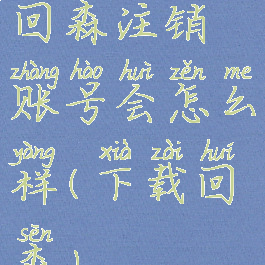 回森注销
zhàng hào huì zěn me
账号会怎么
yàng xià zài huí
样(下载回
sēn
森)